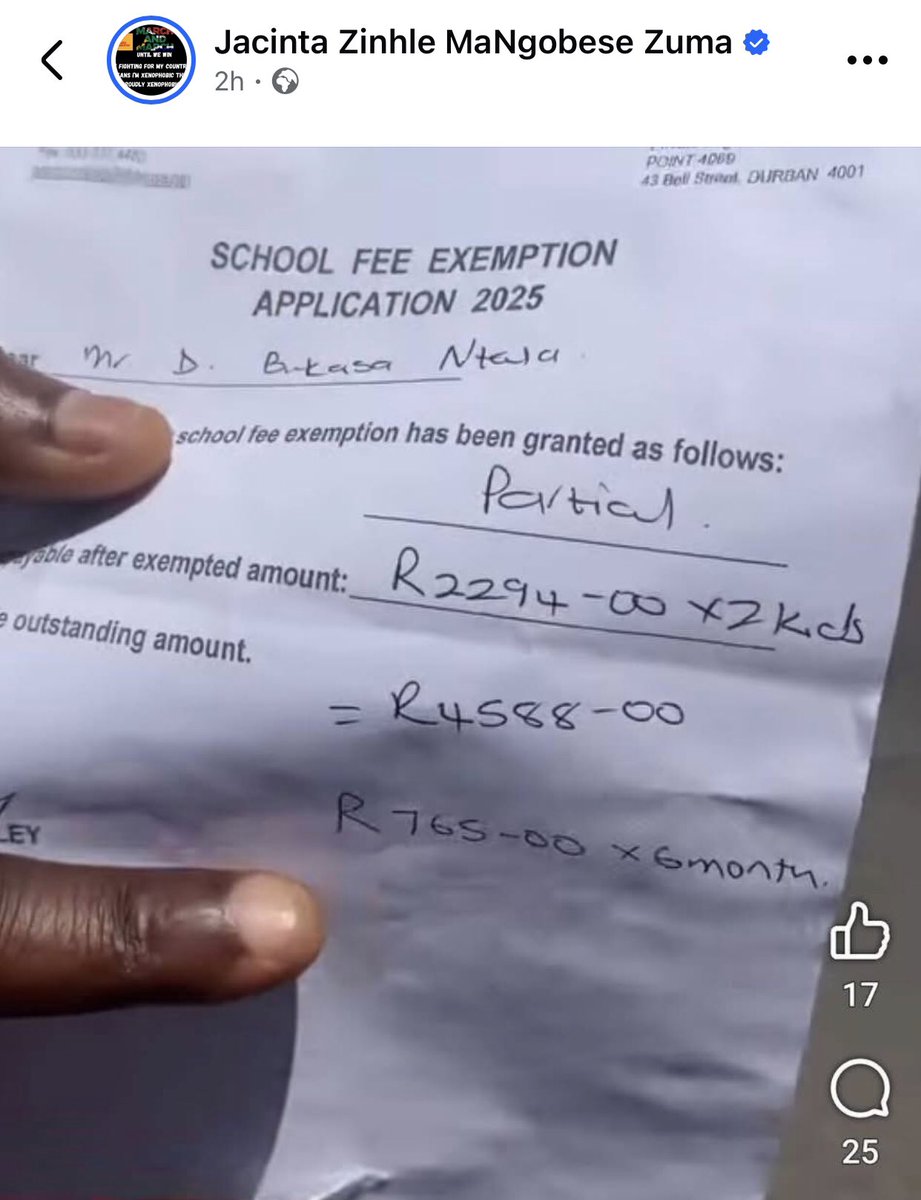 Jacinta Zinhle MaNgobese Zuma
2h
MARCH
AND
MARCH
UNTIL WE WIN
FIGHTING FOR MY COUNTR
ANS I'M XENOPHOBIC TH
ROUDLY XENOPHOB
POINT 4069
43 Bell Street, DURBAN 4001
SCHOOL FEE EXEMPTION
APPLICATION 2025
ear Mr D. Ntala
school fee exemption has been granted as follows:
Partial.
ayable after exempted amount: R2294-00 x2 Kids
e outstanding amount.
= R4588-00
LEY
R765-00 x 6month.
17
25